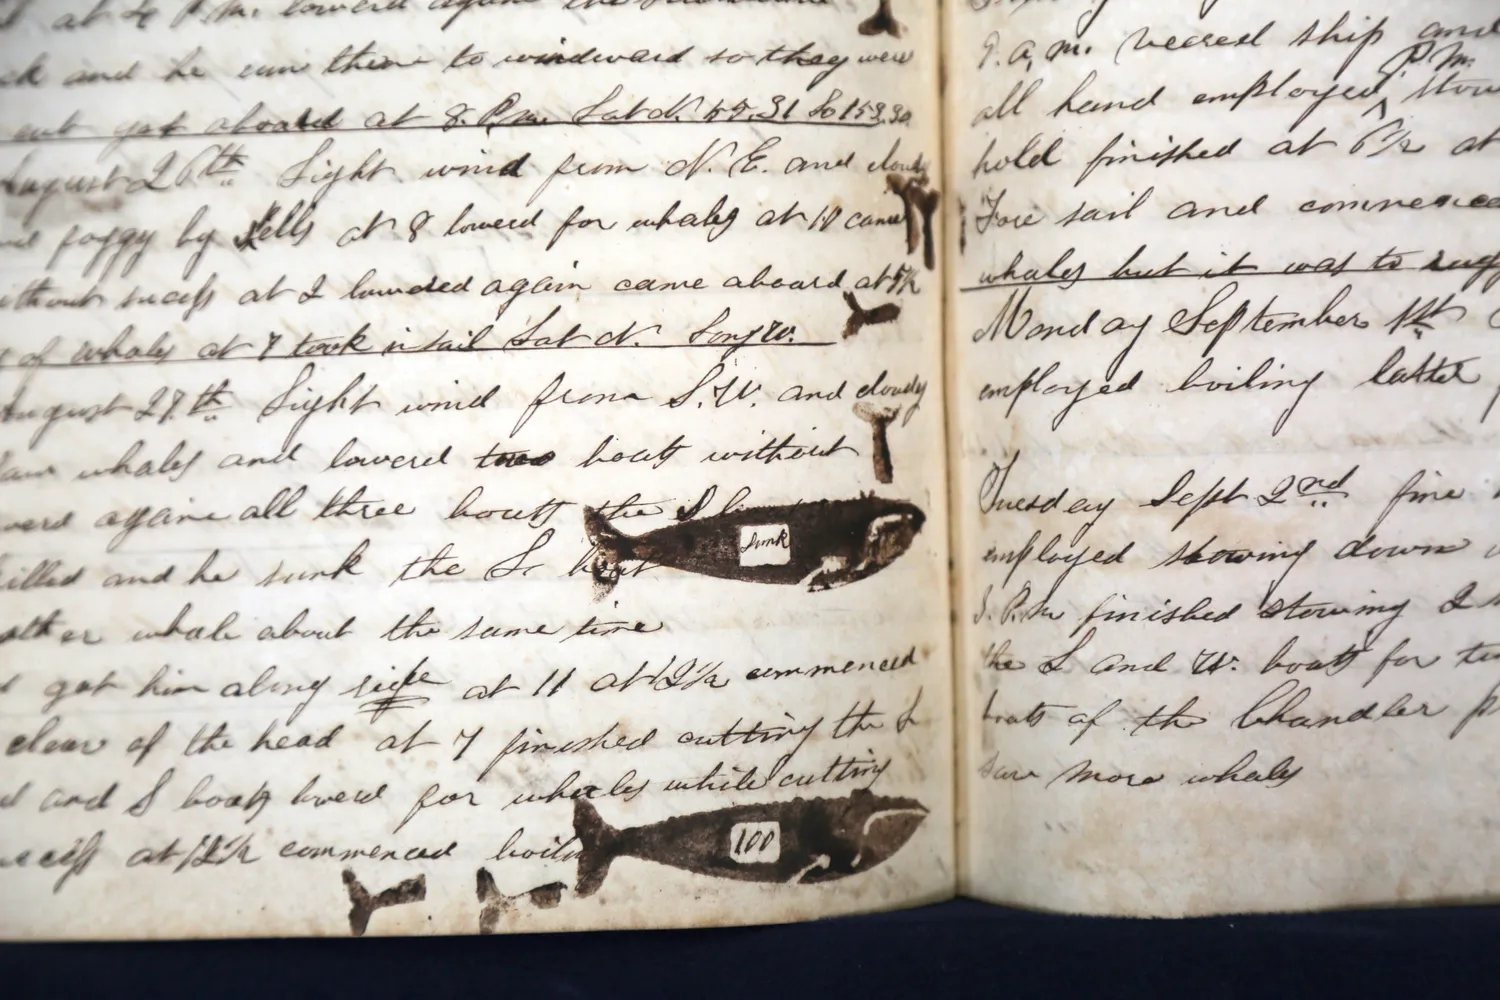 at 4 P.M. lowered again
and he run them to windward so they were
got aboard at 8. P.m. Lat N. 57.31 Lo 153.30
August 26th Light wind from N. E. and cloudy
foggy by spells at 8 lowerd for whales at 10 came
without sucess at 2 lowered again came aboard at 5½
of whales at 7 took in sail Lat N. Long W.
August 27th Light wind from S.W. and cloudy
saw whales and lowerd two boats without
again all three boats the S
killed and he sunk the L boat
whale about the same time
got him along side at 11 at 12½ commenced
clear of the head at 7 finished cutting the L
and S boats lowerd for whales while cutting
at 12½ commenced boiling
sunk
100
9. a, m. neared ship and
all hand employed P.M. stow
hold finished at 6½ at
Fore sail and commenced
whales but it was to rugg
Monday September 1st
employed boiling latter
Tuesday Sept 2nd fine
employed stowing down
P.M finished stowing 2
the L and W. boats for
boats of the Chandler
saw more whales